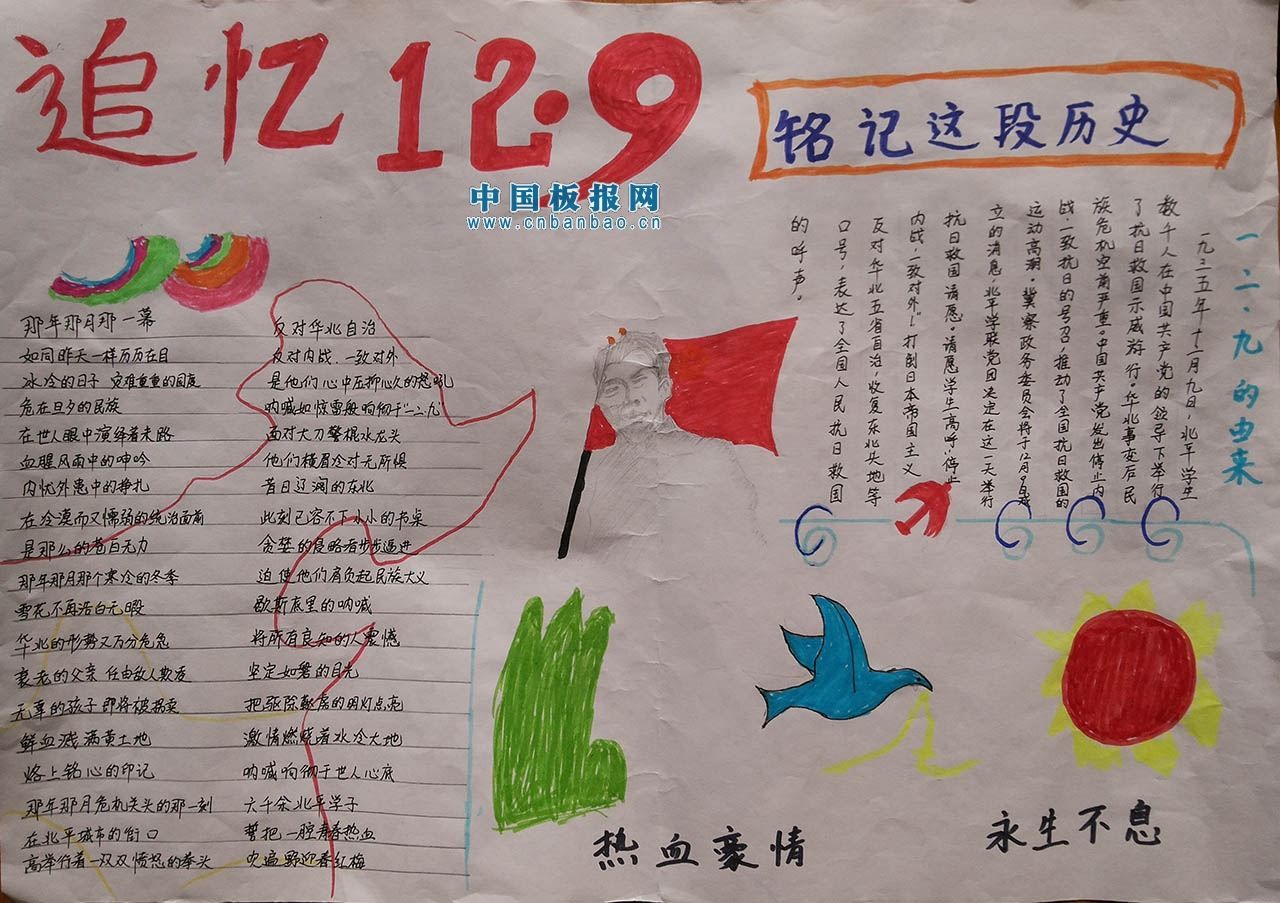 追忆12.9
中国板报网
www.cnbanbao.cn
铭记这段历史
一二·九的由来
一九三五年十二月九日,北平学生
数千人在中国共产党的领导下举行
了抗日救国示威游行。华北事变后民
族危机空前严重。中国共产党发出停止内
战,一致抗日的号召,推动了全国抗日救国的
运动高潮。冀察政务委员会将于12月9日成
立的消息,北平学联党团决定在这一天举行
抗日救国请愿。请愿学生高呼:“停止
内战,一致对外”“打倒日本帝国主义
反对华北五省自治,收复东北失地等
口号,表达了全国人民抗日救国
的呼声。
那年那月那一幕
如同昨天一样历历在目
冰冷的日子 灾难重重的国度
危在旦夕的民族
在世人眼中演绎着末路
血腥风雨中的呻吟
内忧外患中的挣扎
在冷漠而又懦弱的统治面前
是那么的苍白无力
那年那月那个寒冷的冬季
雪花不再洁白无暇
华北的形势又万分危急
衰老的父亲 任由敌人欺凌
无辜的孩子 即将被拐卖
鲜血溅满黄土地
烙上铭心的印记
那年那月危机关头的那一刻
在北平城市的街口
高举行着一双双愤怒的拳头
反对华北自治
反对内战、一致对外
是他们心中压抑心久的怒吼
呐喊如惊雷般响彻于“一二九
面对大刀警棍水龙头
他们横眉冷对无所惧
昔日辽阔的东北
此刻已容不下小小的书桌
贪婪的侵略者步步逼进
迫使他们肩负起民族大义
歇斯底里的呐喊
将所有良知的人震憾
坚定如磐的目光
把驱除鞑虏的明灯点亮
激情燃烧着冰冷大地
呐喊响彻于世人心底
六千余北平学子
誓把一腔青春热血
吹遍野迎春红梅
热血豪情
永生不息